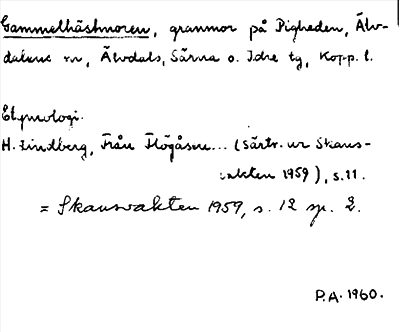 Gammelhästmoren, granmor på Pigheden, Älv-
dalens sn, Älvdals, Särna o. Idre tg, Kopp. l.
Etymologi.
H. Lindberg, Från Högåsen... (Särtr. ur Skans-
vakten 1959), s. 11.
= Skansvakten 1959, s. 12 sp. 2.
P.A. 1960.